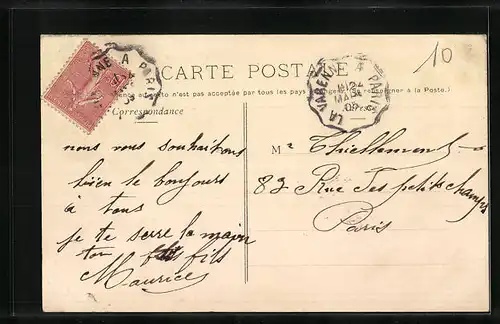 10
CARTE POSTALE
n'est pas acceptée par tous les pays
se renseigner à la Poste.)
Correspondance
LA VARENNE A PARIS
24
MARS
05
NE A PARIS
nous nous souhaitons
bien le bonjours
à tous
je te serre la main
ton fils
Maurice
Mr Thiellement
82 Rue des petits champs
Paris